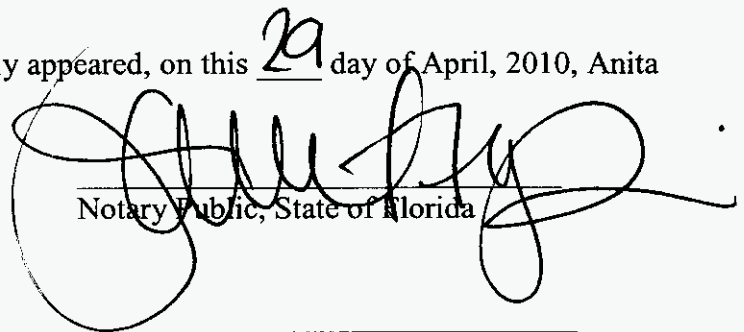 y appeared, on this 29 day of April, 2010, Anita
Notary Public, State of Florida